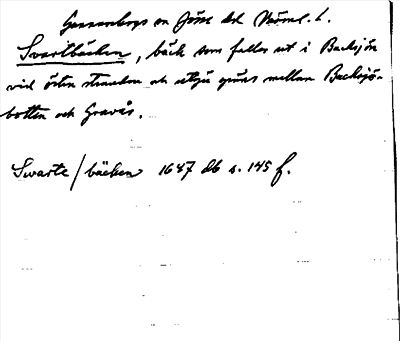 Gunnarskogs sn Jösse hd Värml. l.
Svartbäcken, bäck som faller ut i Backsjön
vid östra stranden och utgör gräns mellan Backsjö-
botten och Gravås.
Swarte/bäcken 1647 db s. 145 f.